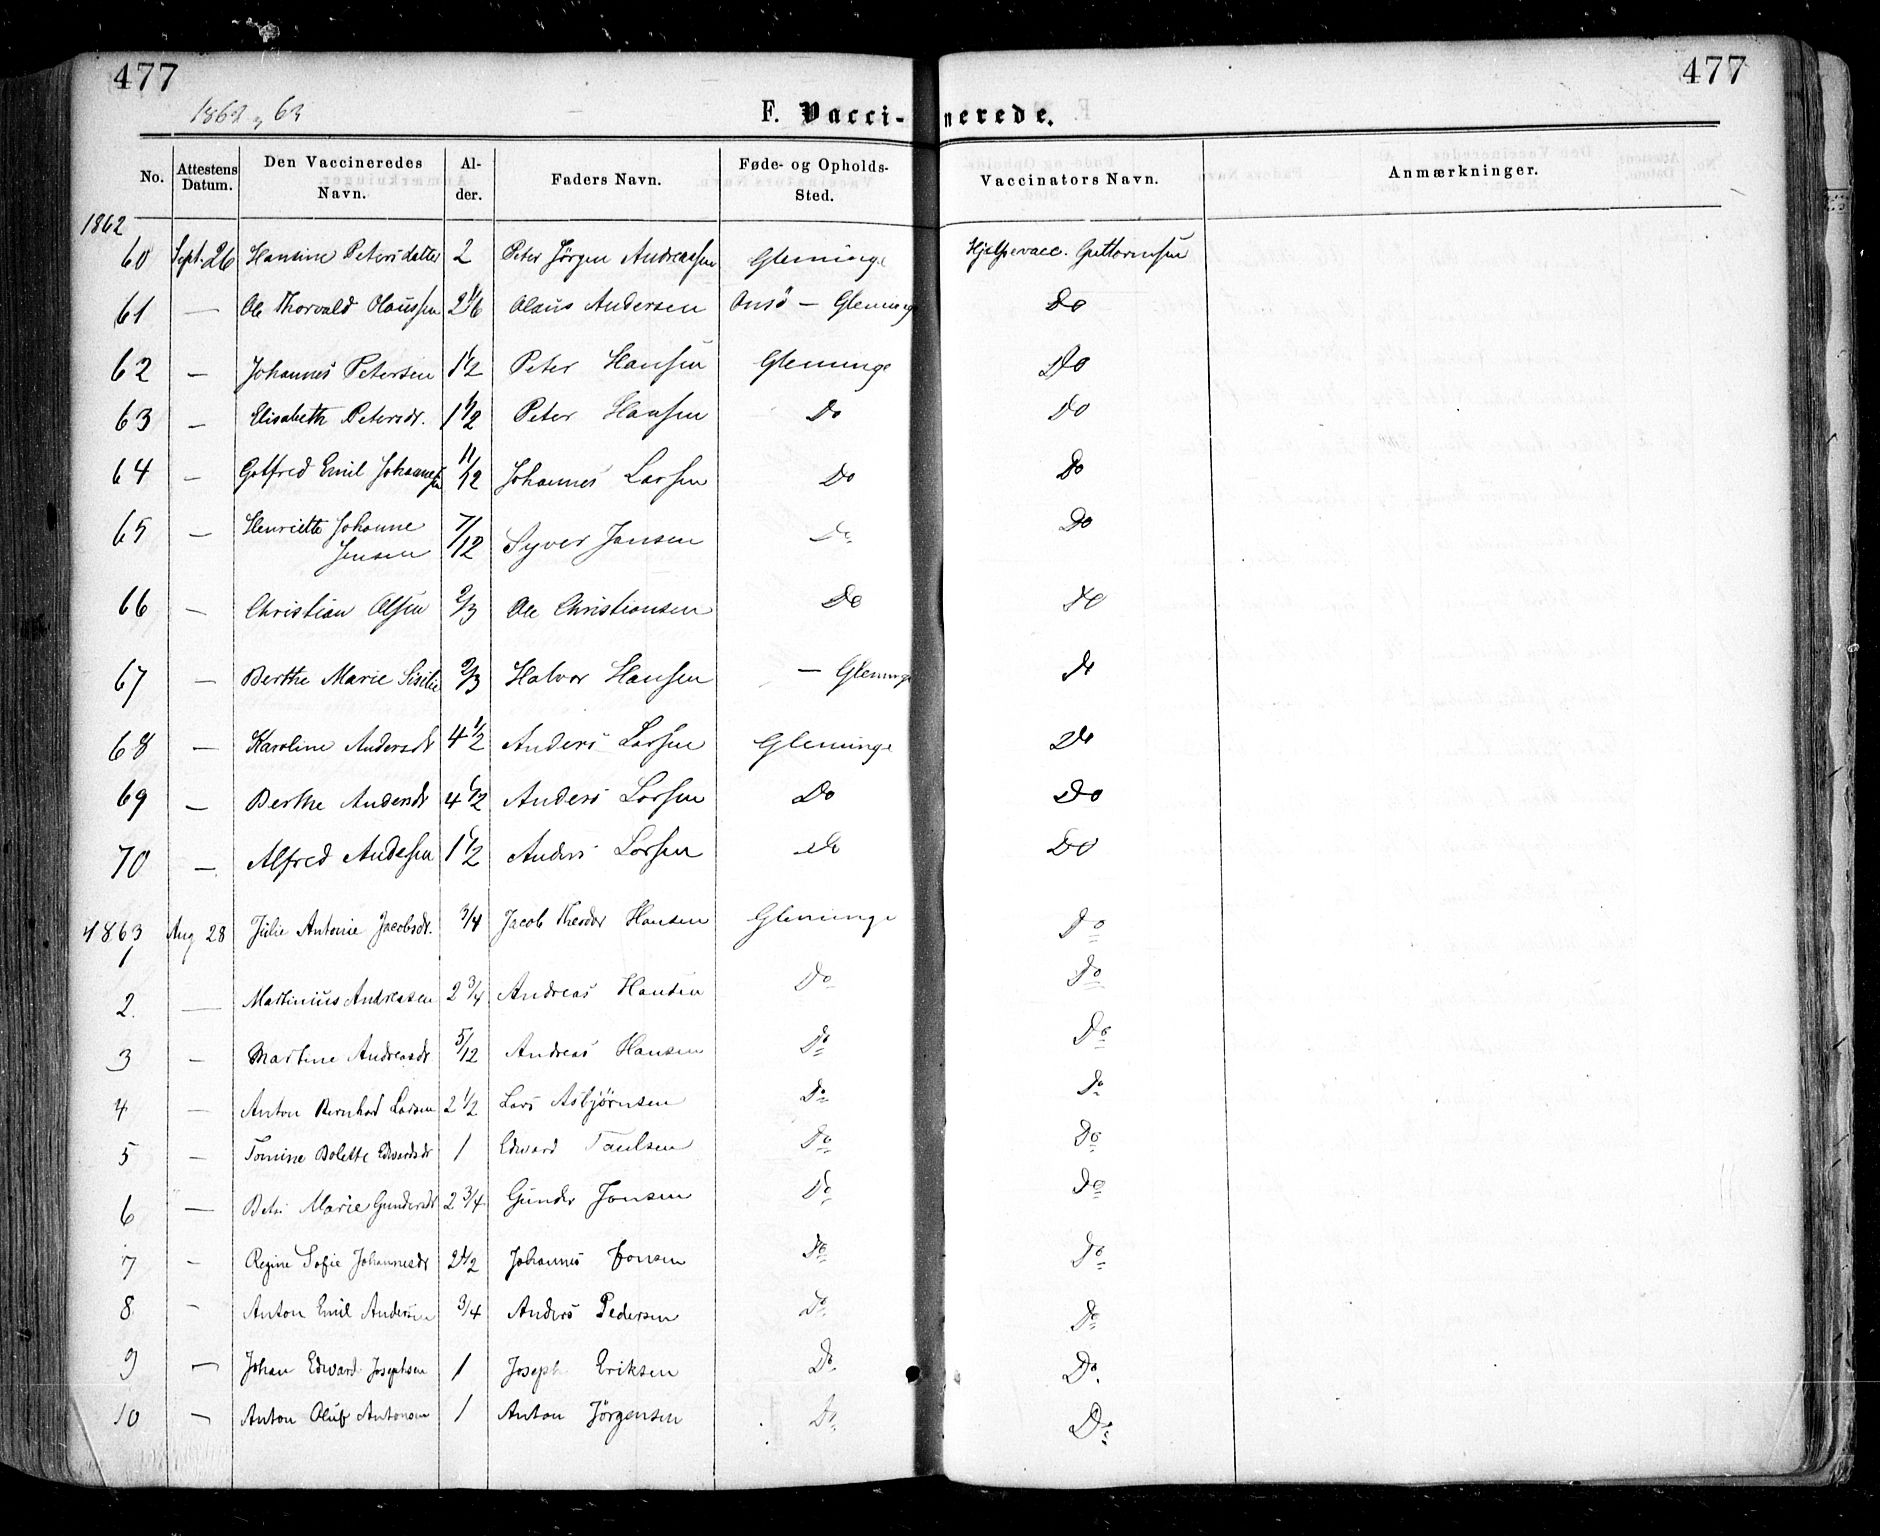 477 477
1862 & 63
F. Vaccinerede.
No. Attestens Datum. Den Vaccineredes Navn. Alder. Faders Navn. Føde- og Opholds-Sted. Vaccinators Navn. Anmærkninger.
1862
60 Sept. 26 Hansine Petersdatter 2 Peter Jörgen Andreassen Glemminge Hjelpevacc. Guttormsen
61 — Ole Thorvald Olaussen Olaus Andersen Onsö — Glemminge Do
62 — Johannes Petersen 1 1/2 Peter Hansen Glemminge Do
63 — Elisabeth Petersdr. 1 1/2 Peter Hansen Do Do
64 — Gotfred Emil Johannessen 11/12 Johannes Larsen Do Do
65 — Henriette Johanne Jensen 7/12 Syver Jansen Do Do
66 — Christian Olsen 2/3 Ole Christiansen Do Do
67 — Berthe Marie Sisilie 2/3 Halvor Hansen — Glemminge Do
68 — Karoline Andersdr 4 1/2 Anders Larsen Glemminge Do
69 — Berthe Andersdr 4 1/2 Anders Larsen Do Do
70 — Alfred Andersen 1 1/2 Anders Larsen Do Do
1863
1 Aug 28 Julie Antonie Jacobsdr. 3/4 Jacob Theodor Hansen Glemminge Do
2. — Martinius Andreasen 2 3/4 Andreas Hansen Do Do
3 — Martine Andreasdr 5/12 Andreas Hansen Do Do
4 — Anton Bernhard Larsen 2 1/2 Lars Asbjörnsen Do Do
5 — Tomine Bolette Edwardsdr 1 Edward Paulsen Do Do
6 — Marie Gundersdr 2 3/4 Gunder Jonsen Do Do
7 — Regine Sofie Johannesdr 2 1/2 Johannes Jonsen Do Do
8 — Anton Emil Andersen 3/4 Anders Pedersen Do Do
9 — Johan Edward Josephsen 1 Joseph Eriksen Do. Do.
10 — Anton Oluf Antonsen 1 Anton Jörgensen Do Do